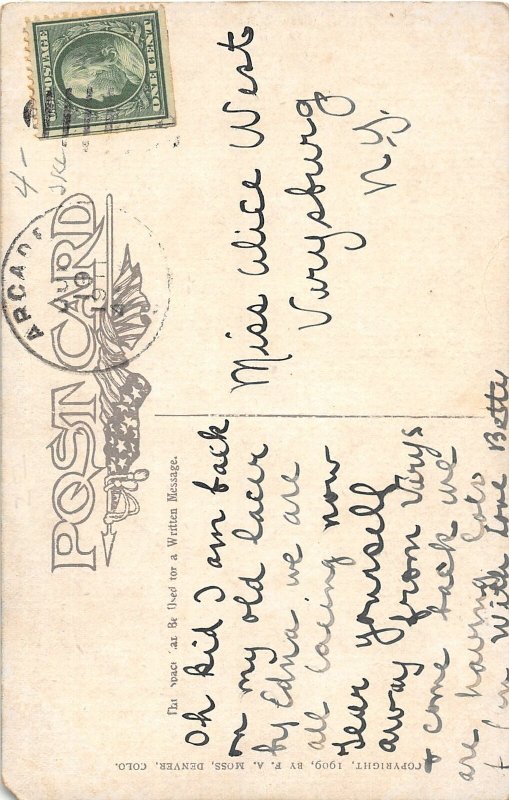 U.S. POSTAGE
ONE CENT
4-
POST CARD
ARCADE
10
This Space Can Be Used for a Written Message.
Oh kid I am back
on my old lacer
by Edna we are
all lacing now
Tear yourself
away from Verys
& come back we
are having lots
With Love Betty
Miss Alice West
Verysburg
N.Y.
COPYRIGHT, 1909, BY F. A. MOSS, DENVER, COLO.